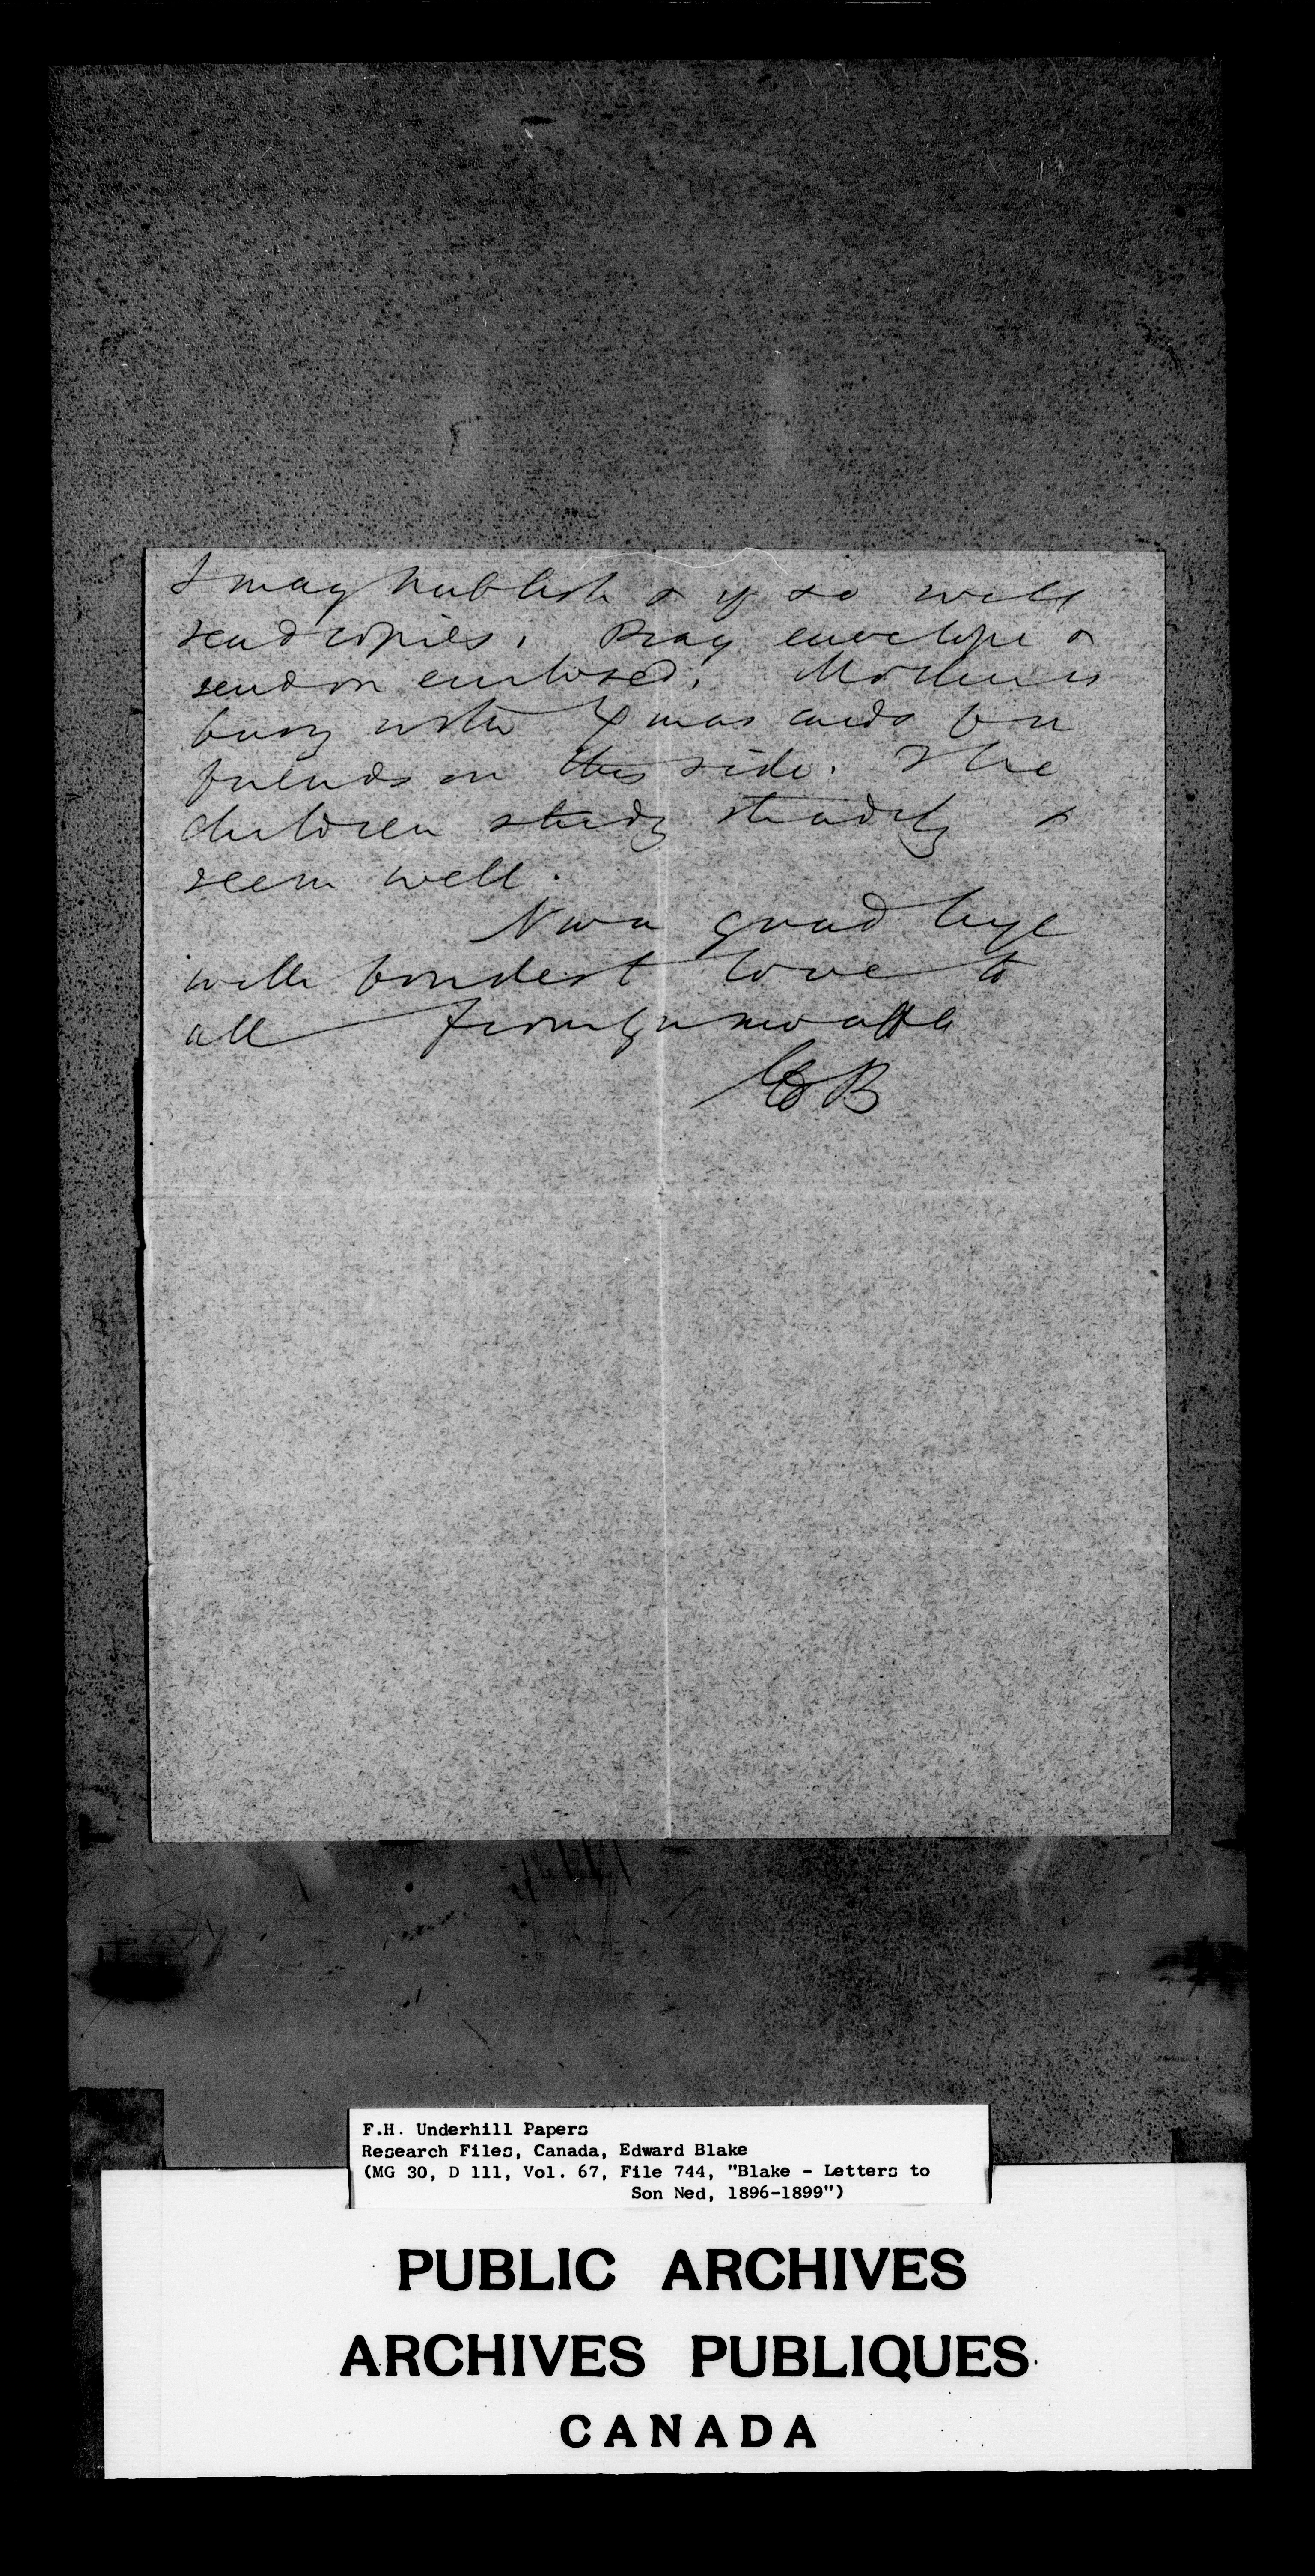 I may publish & if so will
send copies. Pray envelope &
send on enclosed. Mother is
busy with Xmas cards for
friends on this side. The
children study steadily &
seem well.
Now good bye
with fondest love to
all From yr mo affte
EB
F.H. Underhill Papers
Research Files, Canada, Edward Blake
(MG 30, D 111, Vol. 67, File 744, "Blake - Letters to
Son Ned, 1896-1899")
PUBLIC ARCHIVES
ARCHIVES PUBLIQUES
CANADA